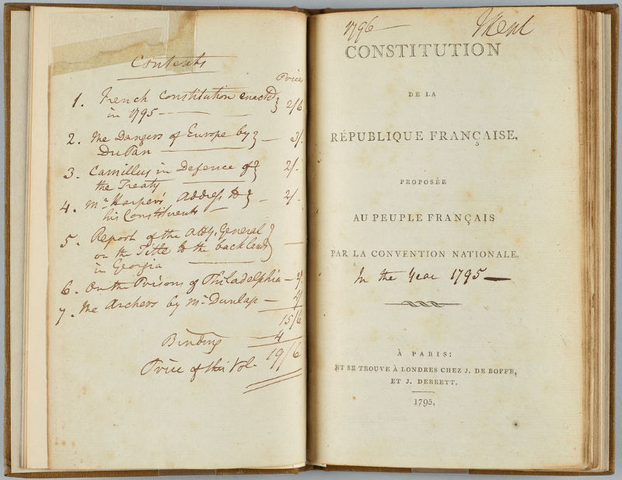 Contents
Price
1. French Constitution enacted
in 1795 — 2/6
2. The Dangers of Europe by
DuPan — 2/.
3. Camillus in Defence of
the Treaty — 2/.
4. Mr Harper's Address to
his Constituents — 2/.
5. Report of the Atty General
on the Title to the back land
in Georgia —
6. On the Prisons of Philadelphia —
7. The Archers by Mr Dunlap —
15/6
Binding 4
Price of this Vol. 19/6
1796
CONSTITUTION
DE LA
RÉPUBLIQUE FRANÇAISE,
PROPOSÉE
AU PEUPLE FRANÇAIS
PAR LA CONVENTION NATIONALE.
In the Year 1795 —
À PARIS:
ET SE TROUVE À LONDRES CHEZ J. DE BOFFE,
ET J. DEBRETT.
1795.